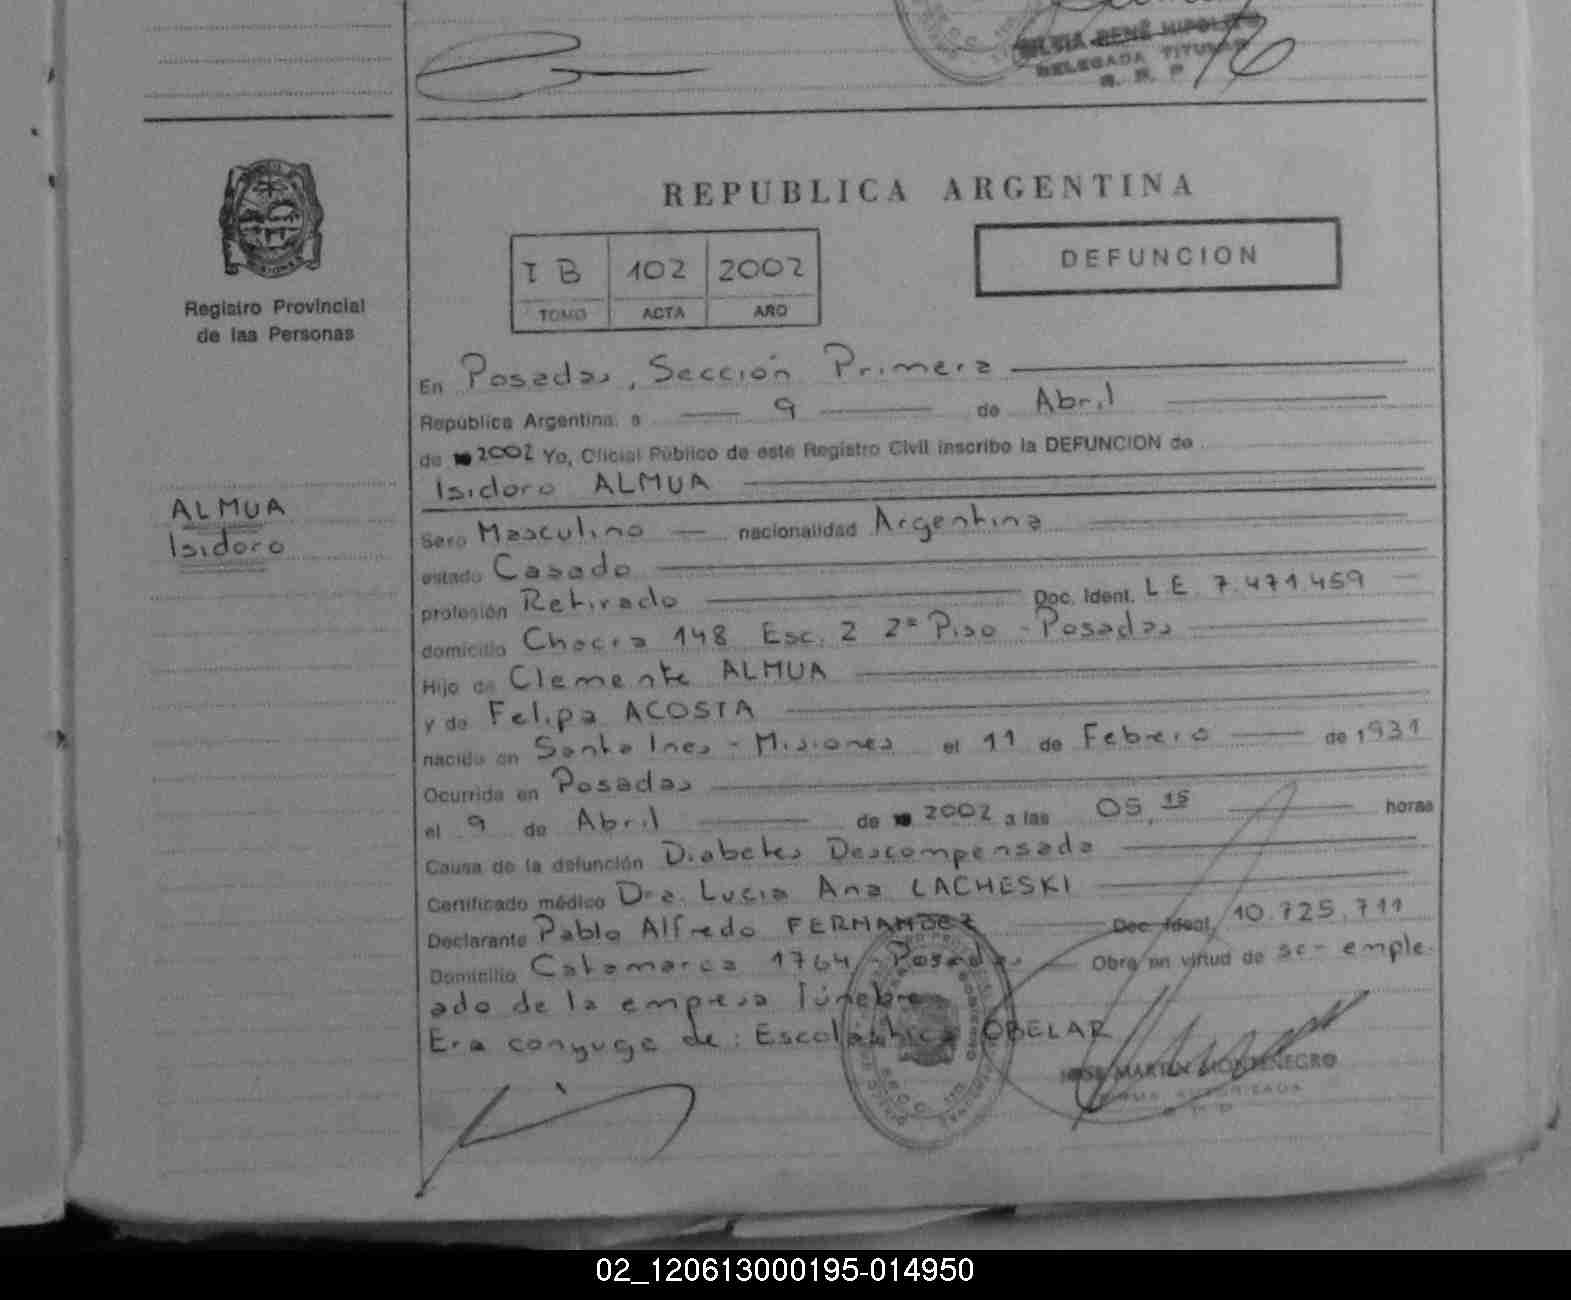 SILVIA RENÉ HIPOLITO
DELEGADA TITULAR
R. R. P
MISIONES
Registro Provincial
de las Personas
REPUBLICA ARGENTINA
I B 102 2002
TOMO ACTA AÑO
DEFUNCION
En Posadas, Sección Primera
República Argentina, a 9 de Abril
de 2002 Yo, Oficial Público de este Registro Civil inscribo la DEFUNCION de
Isidoro ALMUA
ALMUA
Isidoro
Sexo Masculino nacionalidad Argentina
estado Casado
profesión Retirado Doc. Ident. L E 7.471.459
domicilio Chacra 148 Esc. 2 2º Piso - Posadas
Hijo de Clemente ALMUA
y de Felipa ACOSTA
nacido en Santa Ines - Misiones el 11 de Febrero de 1931
Ocurrida en Posadas
el 9 de Abril de 2002 a las 05,15 horas
Causa de la defunción Diabetes Descompensada
Certificado médico Dra. Lucia Ana LACHESKI
Declarante Pablo Alfredo FERNANDEZ Doc. Ident. 10.725.711
Domicilio Catamarca 1764 - Posadas Obra en virtud de se- emple-
ado de la empresa fúnebre
Era conyuge de: Escolástica OBELAR
JOSE MARTIN MONTENEGRO
FIRMA AUTORIZADA
02_120613000195-014950